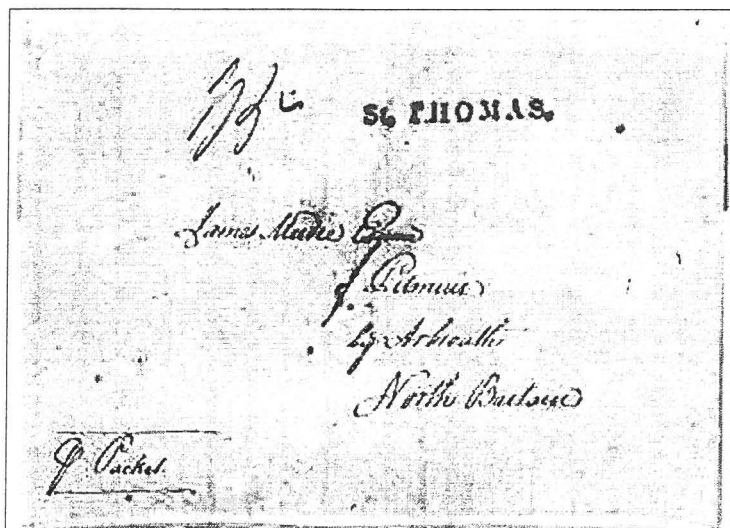 St THOMAS.
James Mudie Esqr
of Pitmuie
by Arbroath
North Britain
P. Packet.